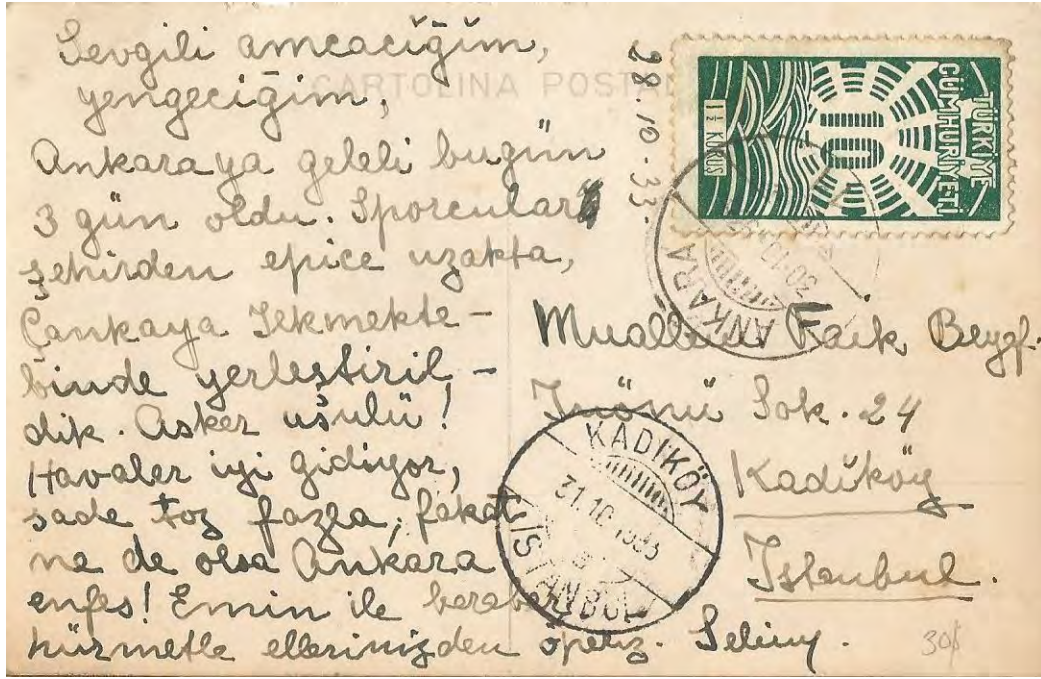 Sevgili amcacığım,
yengeciğim,
Ankaraya geleli bugün
3 gün oldu. Sporcular
şehirden epice uzakta,
Çankaya İlkmekte-
binde yerleştiril-
dik. Asker usulü!
Havalar iyi gidiyor,
sade toz fazla, fakat
ne de olsa Ankara
enfes! Emin ile beraber
hürmetle ellerinizden öperiz. Selim.
28.10.33.
CARTOLINA POSTAL
TÜRKİYE
CÜMHURİYETİ
1½ KURUŞ
ANKARA
30.10
Muallim Faik Beyef.
İnönü Sok. 24
Kadıköy
İstanbul.
KADIKÖY
31.10.1933
İSTANBUL
30